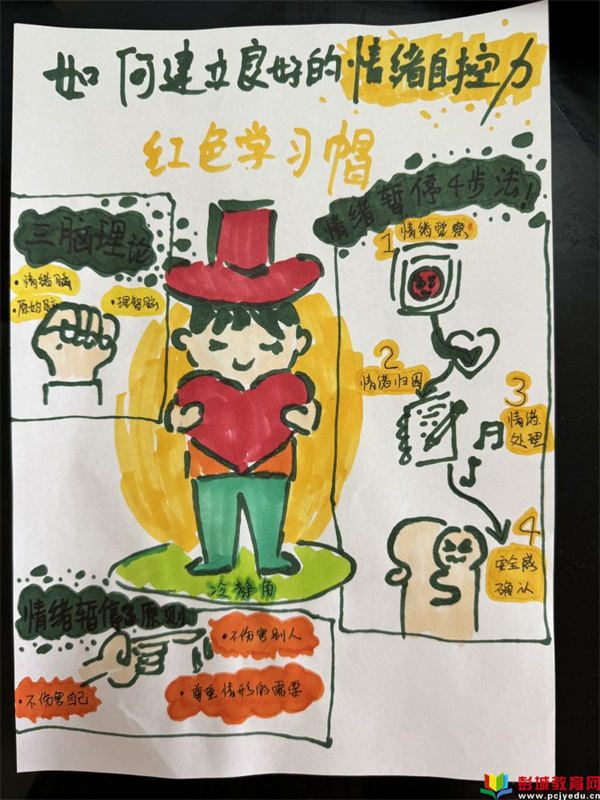 如何建立良好的情绪自控力
红色学习帽
三脑理论
·情绪脑
·原始脑
·理智脑
情绪暂停4步法!
1 情绪觉察
2
情绪归因
3
情绪
处理
4
安全感
确认
冷静角
情绪暂停3原则
·不伤害别人
·不伤害自己
·尊重情形的需要
彭城教育网
www.pcjyedu.cn